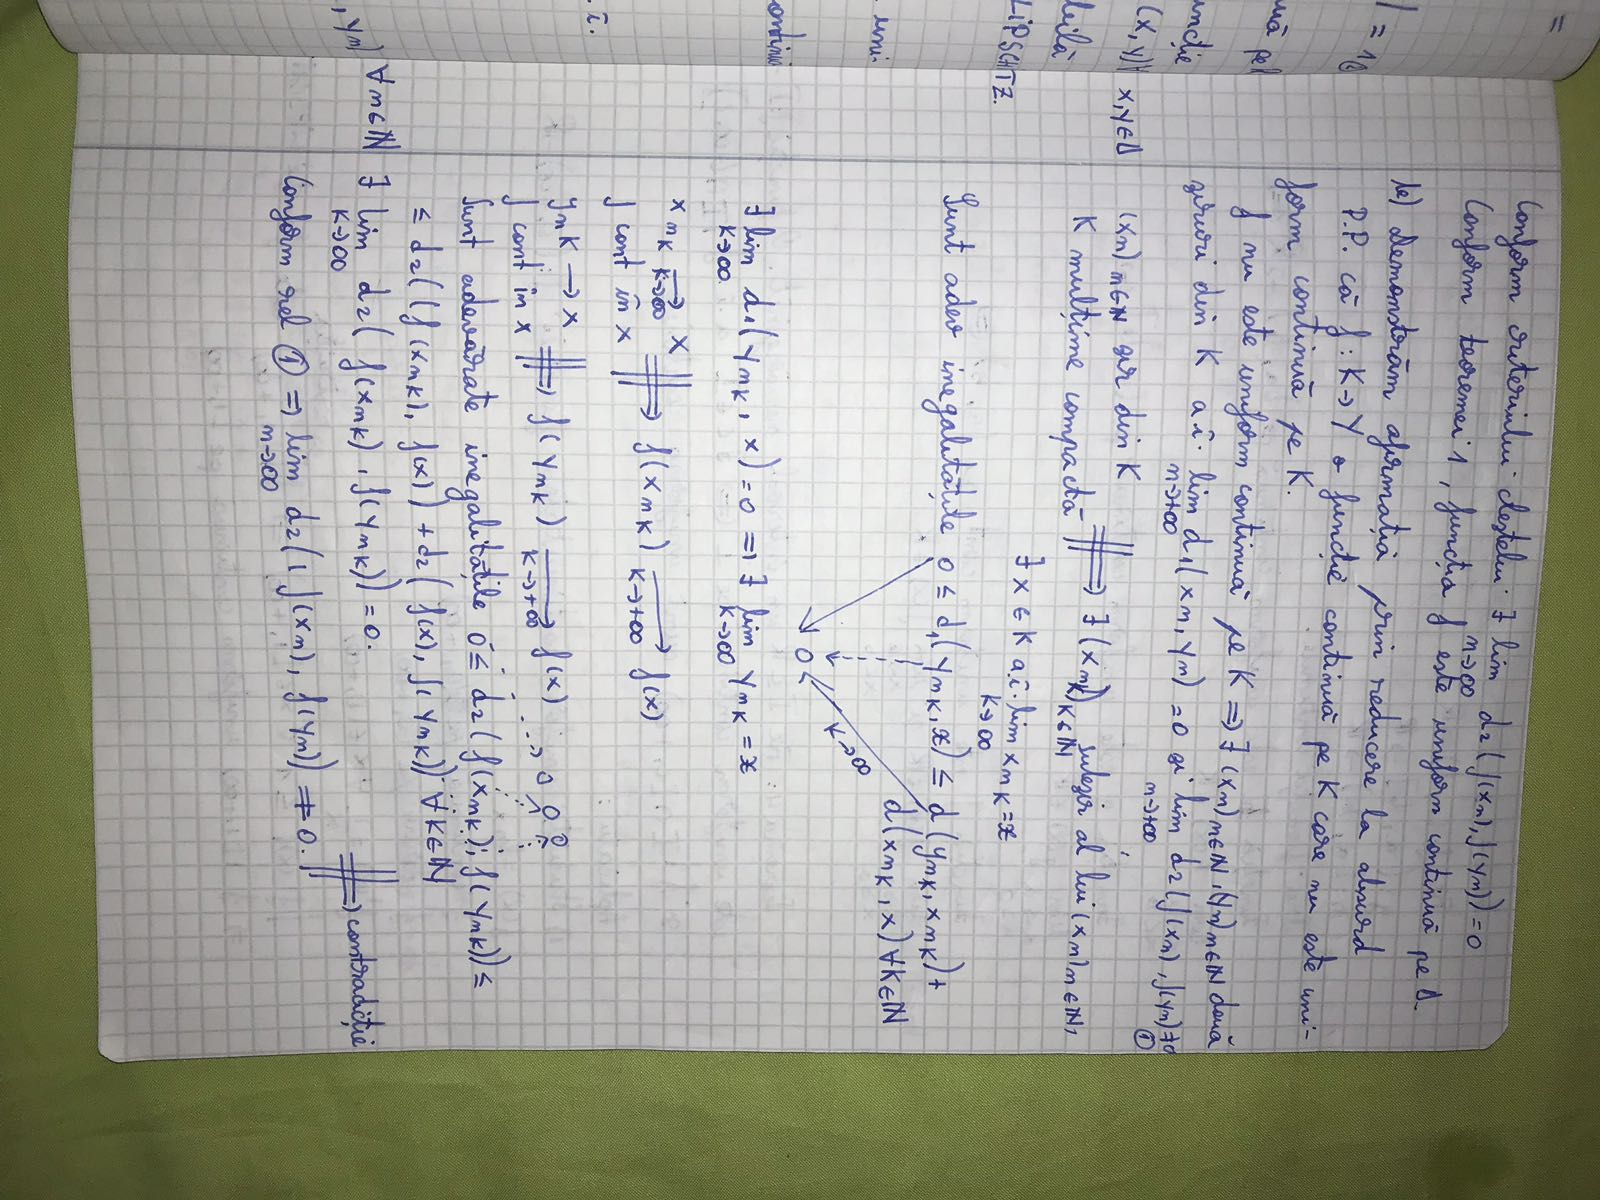 Conform criteriului cleștelui ∃ lim d₂(f(xn), f(yn)) = 0
n→∞
Conform teoremei 1, funcția f este uniform continuă pe D.
b) Demonstrăm afirmația prin reducere la absurd
P.P. că f : K→Y o funcție continuă pe K care nu este uni-
form continuă pe K.
f nu este uniform continuă pe K ⇒ ∃ (xn)n∈ℕ, (yn)n∈ℕ două
șiruri din K a.î. lim d₁(xn, yn) = 0 și lim d₂(f(xn), f(yn)) ≠ 0
n→+∞ n→+∞ ①
(xn)n∈ℕ șir din K
K mulțime compactă ⇒ ∃ (xnk)k∈ℕ subșir al lui (xn)n∈ℕ,
∃ x ∈ K a.î. lim xnk = x
k→∞
Sunt adev inegalitățile 0 ≤ d₁(ynk, x) ≤ d(ynk, xnk) +
d(xnk, x) ∀k∈ℕ
0 k→∞
∃ lim d₁(ynk, x) = 0 ⇒ ∃ lim ynk = x
k→∞ k→∞
xnk → x
k→∞
f cont în x ⇒ f(xnk) → f(x)
k→+∞
ynk → x
f cont în x ⇒ f(ynk) → f(x)
k→+∞
Sunt adevărate inegalitățile 0 ≤ d₂(f(xnk), f(ynk)) ≤
≤ d₂((f(xnk), f(x)) + d₂(f(x), f(ynk)) ∀k∈ℕ
∃ lim d₂(f(xnk), f(ynk)) = 0.
k→∞
Conform rel ① ⇒ lim d₂(f(xn), f(yn)) ≠ 0. ⇒ contradicție
n→∞
, yn) ∀n∈ℕ
(x, y) ∀ x,y∈D
LIPSCHITZ.